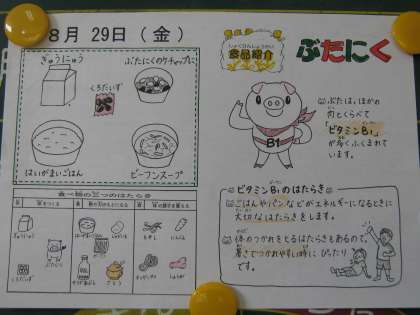 8月 29日(金)
ぎゅうにゅう
ぶたにくのケチャップに
くろだいず
はいがまいごはん
ビーフンスープ
食べ物の三つのはたらき
しょくひんしょうかい
食品紹介
ぶたにく
B1
ぶたは、ほかの
肉とくらべて
「ビタミンB1」
が多くふくまれて
います。
ビタミンB1のはたらき
ごはんやパンなどがエネルギーになるときに
大切なはたらきをします。
体のつかれをとるはたらきもあるので、
暑さでつかれやすい時にぴったり
です。
ぎゅうにゅう
ぶたにく
くろだいず
さとう
もやし
にんじん
しょうが